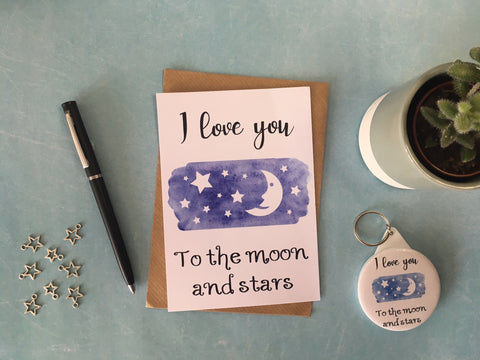 I love you
To the moon
and stars
I love you
To the moon
and stars